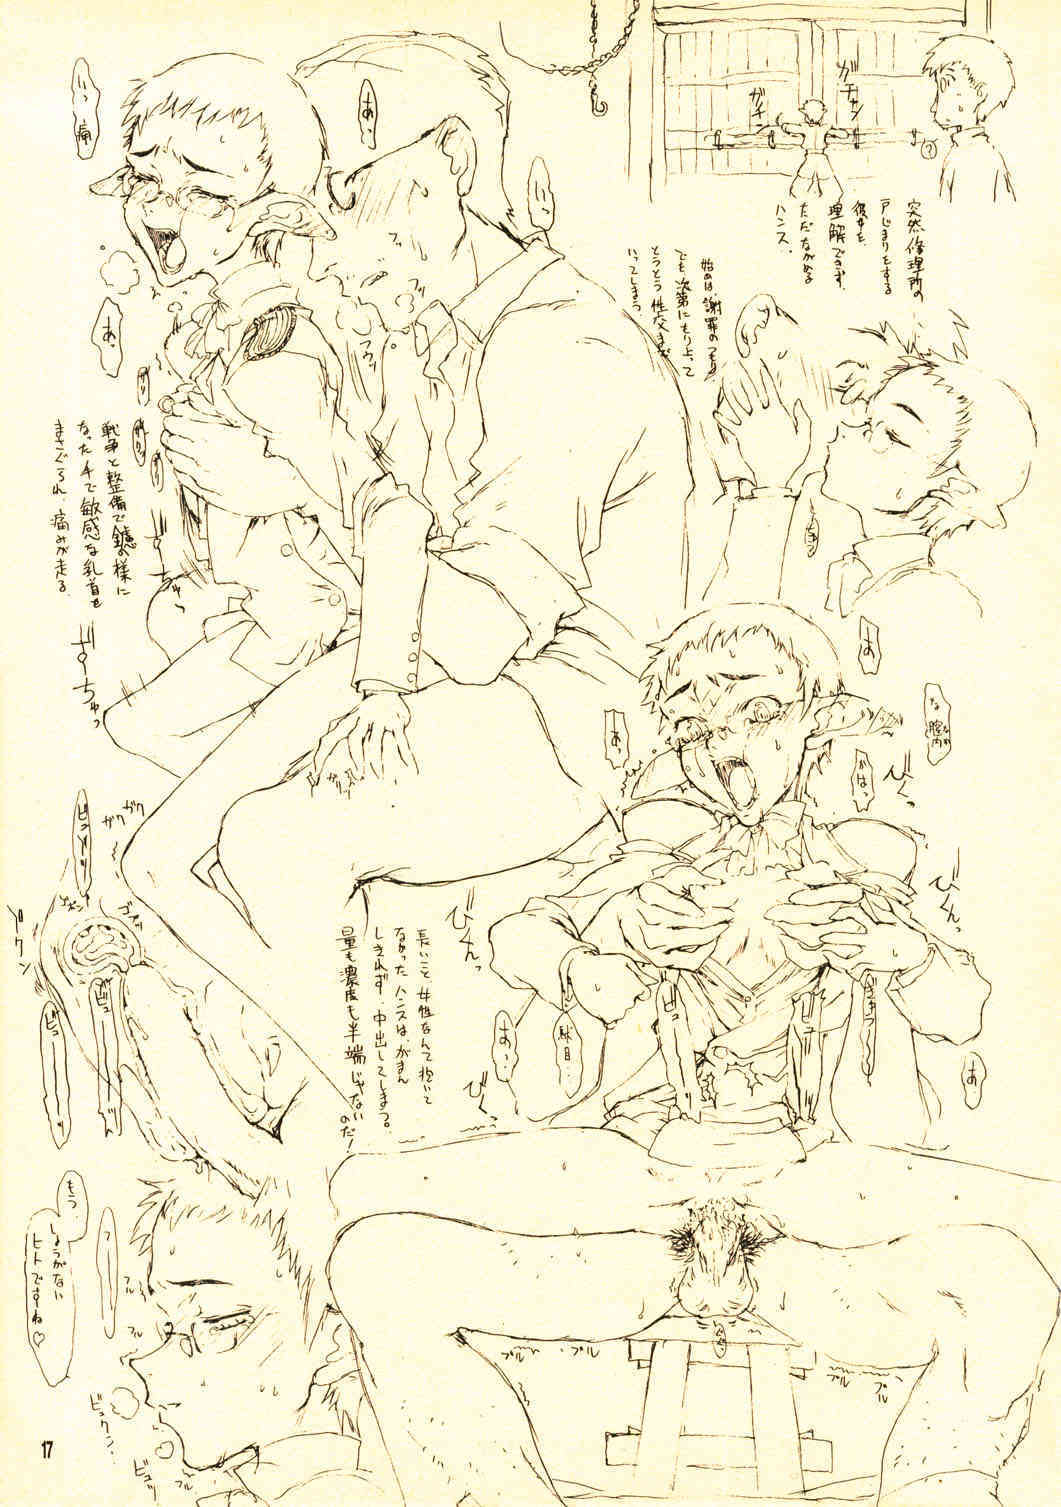 ガチャン
ガチン
?
突然修理所の
戸じまりをする
彼女を
理解できず、
ただながめる
ハンス。
始めは、謝罪のつもり。
でも、次第にもり上って
とうとう性交まで
いってしまう。
いっ
あっ
いっ痛
フッ
フウッ
あ。
戦争と整備で鑢の様に
なった手で敏感な乳首を
まさぐられ、痛みが走る。
ぢゅっ
あっ
な膣内
あっ
かはっ
びくっ
びくんっ
びくんっ
びくっ
あっ
あ。
ビュ
ビュ
長いこと女性なんて抱いて
なかったハンスは、がまん
しきれず、中出ししてしまう。
量も濃度も半端じゃない
のだ!
ガクガク
ドクン
ビュ
ビュ
もう、
しょうがない
ヒトですね♡
フル
フル
ビュクン
ビュッ
プル
プル
プル
プル
17